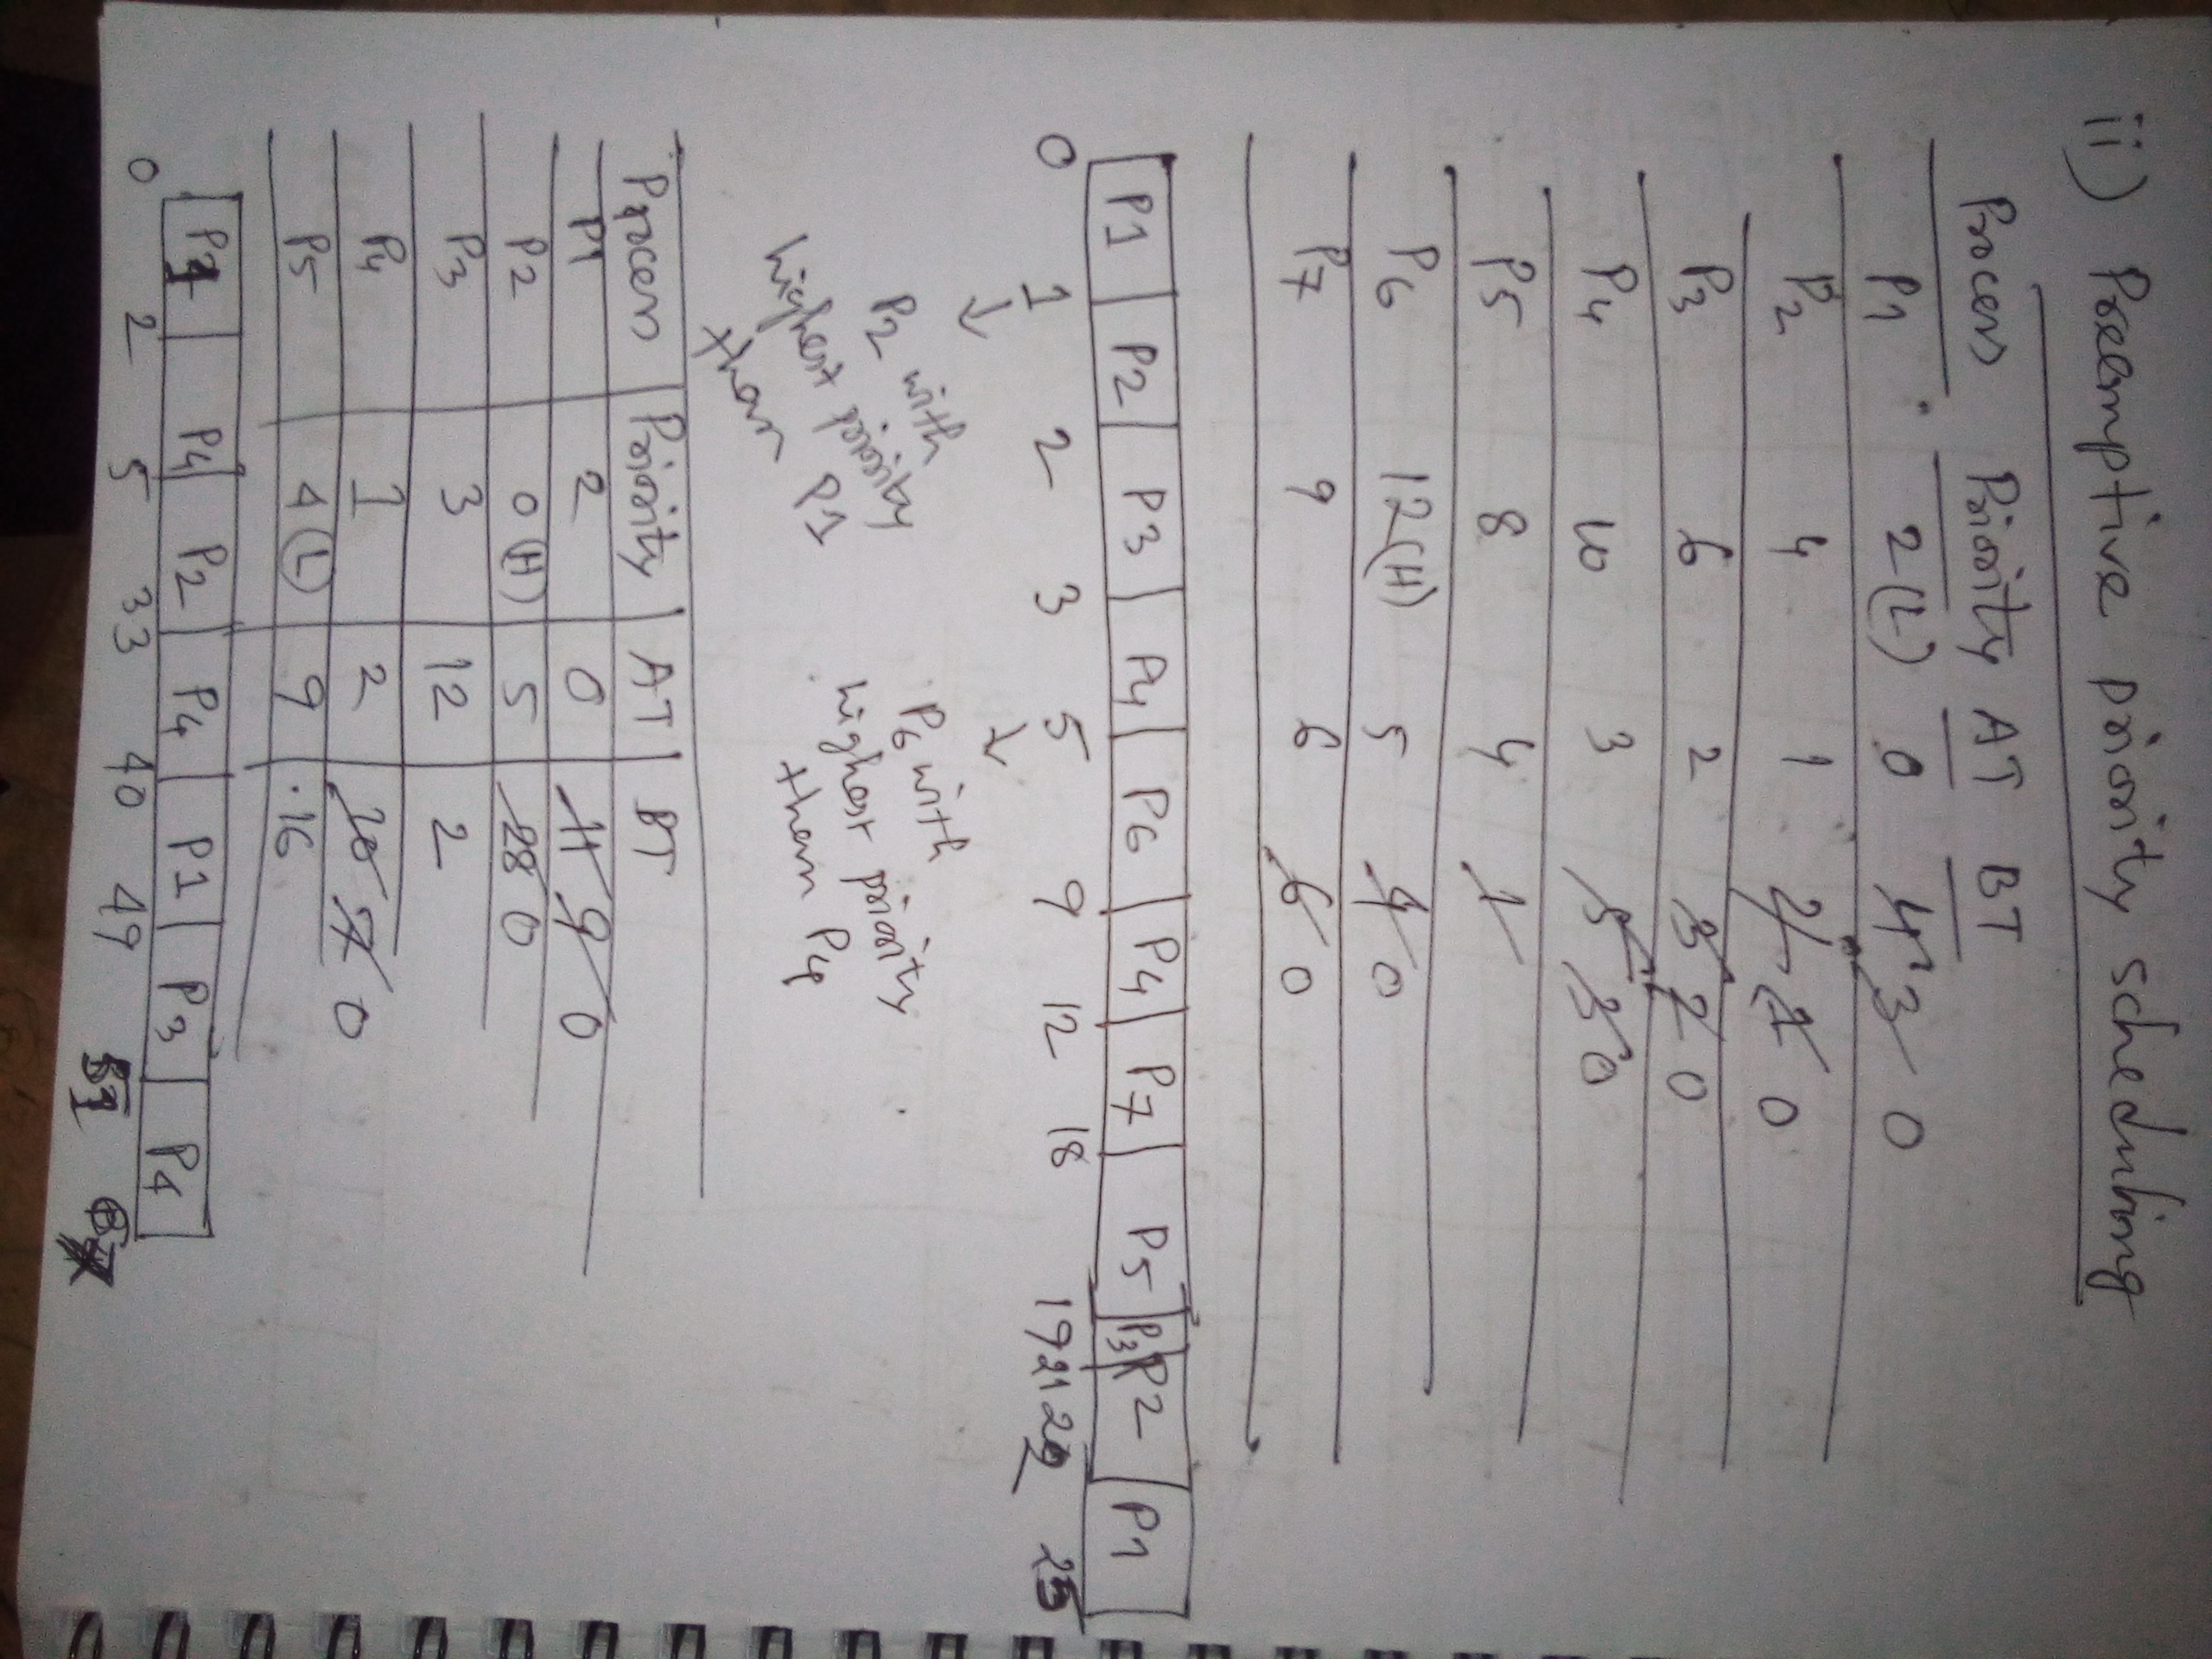 ii) Preemptive priority scheduling
Process Priority AT BT
P1 2(L) 0 4 3 0
P2 4 1 2 1 0
P3 6 2 3 2 0
P4 10 3 5 3 0
P5 8 4 1
P6 12(H) 5 4 0
P7 9 6 6 0
P1 P2 P3 P4 P6 P4 P7 P5 P3 P2 P1
0 1 2 3 5 9 12 18 19 21 22 25
P2 with
highest priority
than P1
P6 with
highest priority
than P4
Process Priority AT BT
P1 2 0 11 9 0
P2 0 (H) 5 28 0
P3 3 12 2
P4 1 2 10 7 0
P5 4 (L) 9 16
P1 P4 P2 P4 P1 P3 P4
0 2 5 33 40 49 51 67